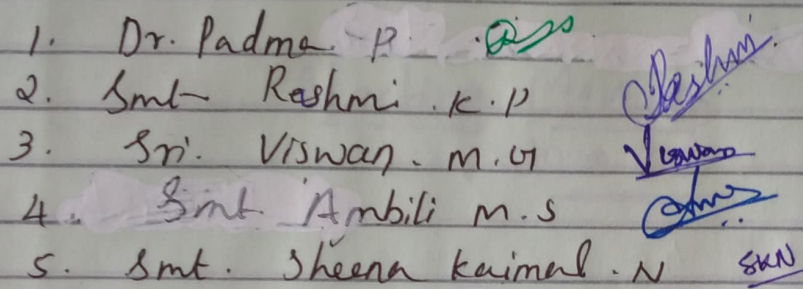 1. Dr. Padma P.
2. Smt Reshmi. K.P Reshmi
3. Sri. Viswan. M.G Viswan
4. Smt Ambili M.S
5. Smt. Sheena Kaimal. N SKN